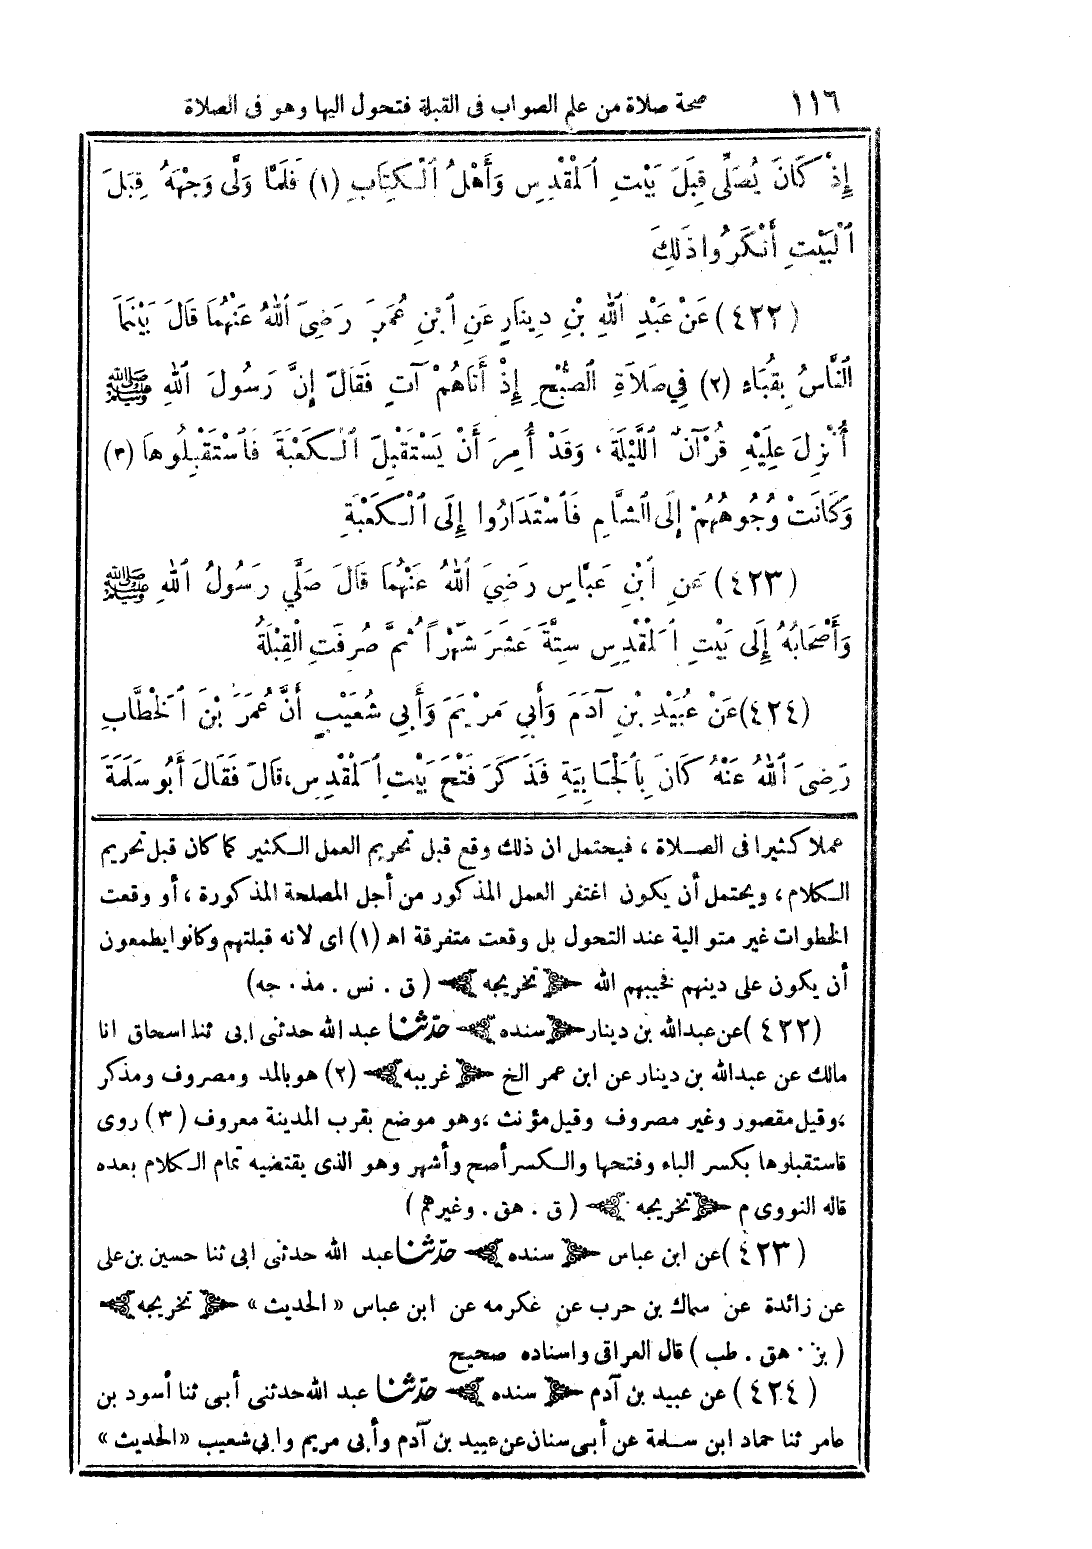 ١١٦ صحة صلاة من علم الصواب فى القبلة فتحول اليها وهو فى الصلاة
إِذْ كَانَ يُصَلِّى قِبَلَ بَيْتِ ٱلْمَقْدِسِ وَأَهْلُ ٱلْكِتَابِ (١) فَلَمَّا وَلَّى وَجْهَهُ قِبَلَ
ٱلْبَيْتِ أَنْكَرُوا ذَلِكَ
(٤٢٢) عَنْ عَبْدِ ٱللهِ بْنِ دِينَارٍ عَنِ ٱبْنِ عُمَرَ رَضِىَ ٱللهُ عَنْهُمَا قَالَ بَيْنَمَا
ٱلنَّاسُ بِقُبَاءٍ (٢) فِي صَلَاةِ ٱلصُّبْحِ إِذْ أَتَاهُمْ آتٍ فَقَالَ إِنَّ رَسُولَ ٱللهِ ﷺ
أُنْزِلَ عَلَيْهِ قُرْآنٌ ٱللَّيْلَةَ، وَقَدْ أُمِرَ أَنْ يَسْتَقْبِلَ ٱلْكَعْبَةَ فَٱسْتَقْبِلُوهَا (٣)
وَكَانَتْ وُجُوهُهُمْ إِلَى ٱلشَّامِ فَٱسْتَدَارُوا إِلَى ٱلْكَعْبَةِ
(٤٢٣) عَنِ ٱبْنِ عَبَّاسٍ رَضِيَ ٱللهُ عَنْهُمَا قَالَ صَلَّي رَسُولُ ٱللهِ ﷺ
وَأَصْحَابُهُ إِلَى بَيْتِ ٱلْمَقْدِسِ سِتَّةَ عَشَرَ شَهْرًا ثُمَّ صُرِفَتِ الْقِبْلَةُ
(٤٢٤) عَنْ عُبَيْدِ بْنِ آدَمَ وَأَبِي مَرْيَمَ وَأَبِي شُعَيْبٍ أَنَّ عُمَرَ بْنَ ٱلْخَطَّابِ
رَضِىَ ٱللهُ عَنْهُ كَانَ بِٱلْجَابِيَةِ فَذَكَرَ فَتْحَ بَيْتِ ٱلْمَقْدِسِ، قَالَ فَقَالَ أَبُو سَلَمَةَ
عملا كثيرا فى الصلاة ، فيحتمل ان ذلك وقع قبل تحريم العمل الكثير كما كان قبل تحريم
الكلام ، ويحتمل أن يكون اغتفر العمل المذكور من أجل المصلحة المذكورة ، أو وقعت
الخطوات غير متوالية عند التحول بل وقعت متفرقة اهـ (١) اى لانه قبلتهم وكانوا يطمعون
أن يكون على دينهم فخيبهم الله ﴿تخريجه﴾ (ق . نس . مذ . جه)
(٤٢٢) عن عبدالله بن دينار ﴿سنده﴾ حدّثنا عبد الله حدثنى ابى ثنا اسحاق انا
مالك عن عبدالله بن دينار عن ابن عمر الخ ﴿غريبه﴾ (٢) هو بالمد ومصروف ومذكر
،وقيل مقصور وغير مصروف وقيل مؤنث ،وهو موضع بقرب المدينة معروف (٣) روى
فاستقبلوها بكسر الباء وفتحها والكسر أصح وأشهر وهو الذى يقتضيه تمام الكلام بعده
قاله النووى م ﴿تخريجه﴾ (ق . هق . وغيرهم)
(٤٢٣) عن ابن عباس ﴿سنده﴾ حدّثنا عبد الله حدثنى ابى ثنا حسين بن على
عن زائدة عن سماك بن حرب عن عكرمه عن ابن عباس «الحديث» ﴿تخريجه﴾
(بز . هق . طب) قال العراقى واسناده صحيح
(٤٢٤) عن عبيد بن آدم ﴿سنده﴾ حدّثنا عبد الله حدثنى أبى ثنا أسود بن
عامر ثنا حماد ابن سلمة عن أبى سنان عن عبيد بن آدم وأبى مريم وابى شعيب «الحديث»